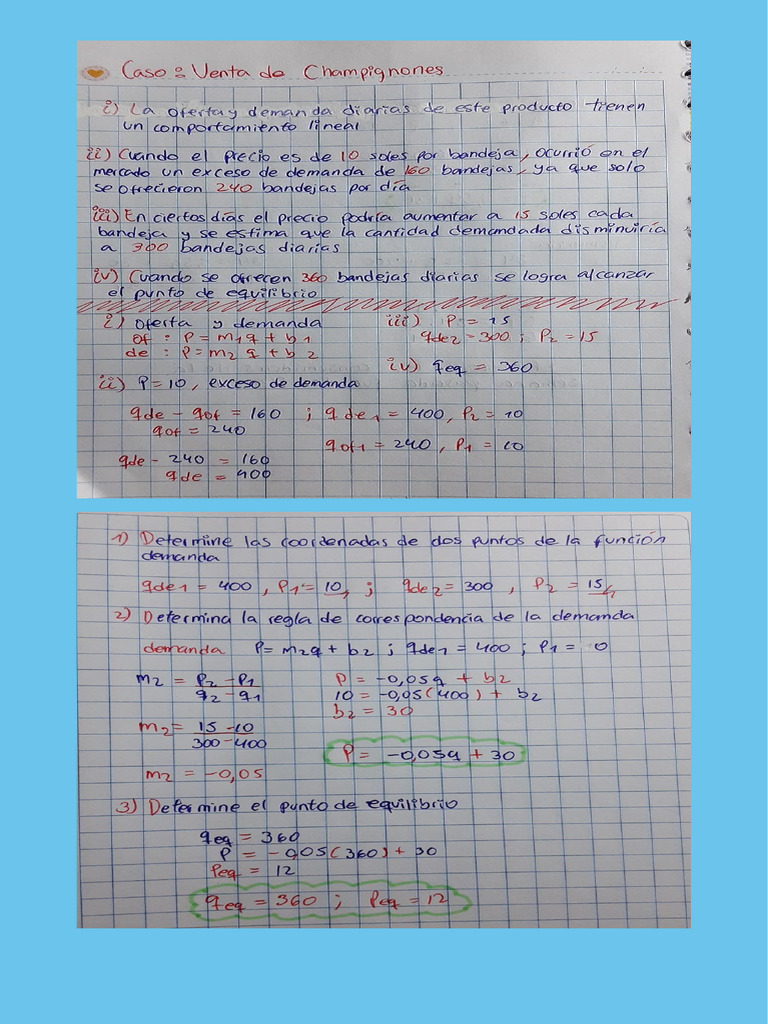 Caso : Venta de Champignones
i) La oferta y demanda diarias de este producto tienen
un comportamiento lineal
ii) Cuando el precio es de 10 soles por bandeja, ocurrió en el
mercado un exceso de demanda de 160 bandejas, ya que solo
se ofrecieron 240 bandejas por día
iii) En ciertos días el precio podría aumentar a 15 soles cada
bandeja y se estima que la cantidad demandada disminuiría
a 300 bandejas diarias
iv) Cuando se ofrecen 360 bandejas diarias se logra alcanzar
el punto de equilibrio
i) oferta y demanda
of : P = m1q + b1
de : P = m2 q + b2
ii) P = 10, exceso de demanda
qde - qof = 160 ; qde1 = 400, P2 = 10
qof = 240
qof1 = 240, P1 = 10
qde - 240 = 160
qde = 400
iii) P = 15
qde2 = 300 ; P2 = 15
iv) qeq = 360
1) Determine las coordenadas de dos puntos de la función
demanda
qde1 = 400, P1 = 10 ; qde2 = 300, P2 = 15
2) Determina la regla de correspondencia de la demanda
demanda P = m2q + b2 ; qde1 = 400 ; P1 = 0
m2 = P2 - P1
q2 - q1
m2 = 15 - 10
300 - 400
m2 = -0,05
P = -0,05q + b2
10 = -0,05(400) + b2
b2 = 30
P = -0,05q + 30
3) Determine el punto de equilibrio
qeq = 360
P = -0,05(360) + 30
Peq = 12
qeq = 360 ; Peq = 12